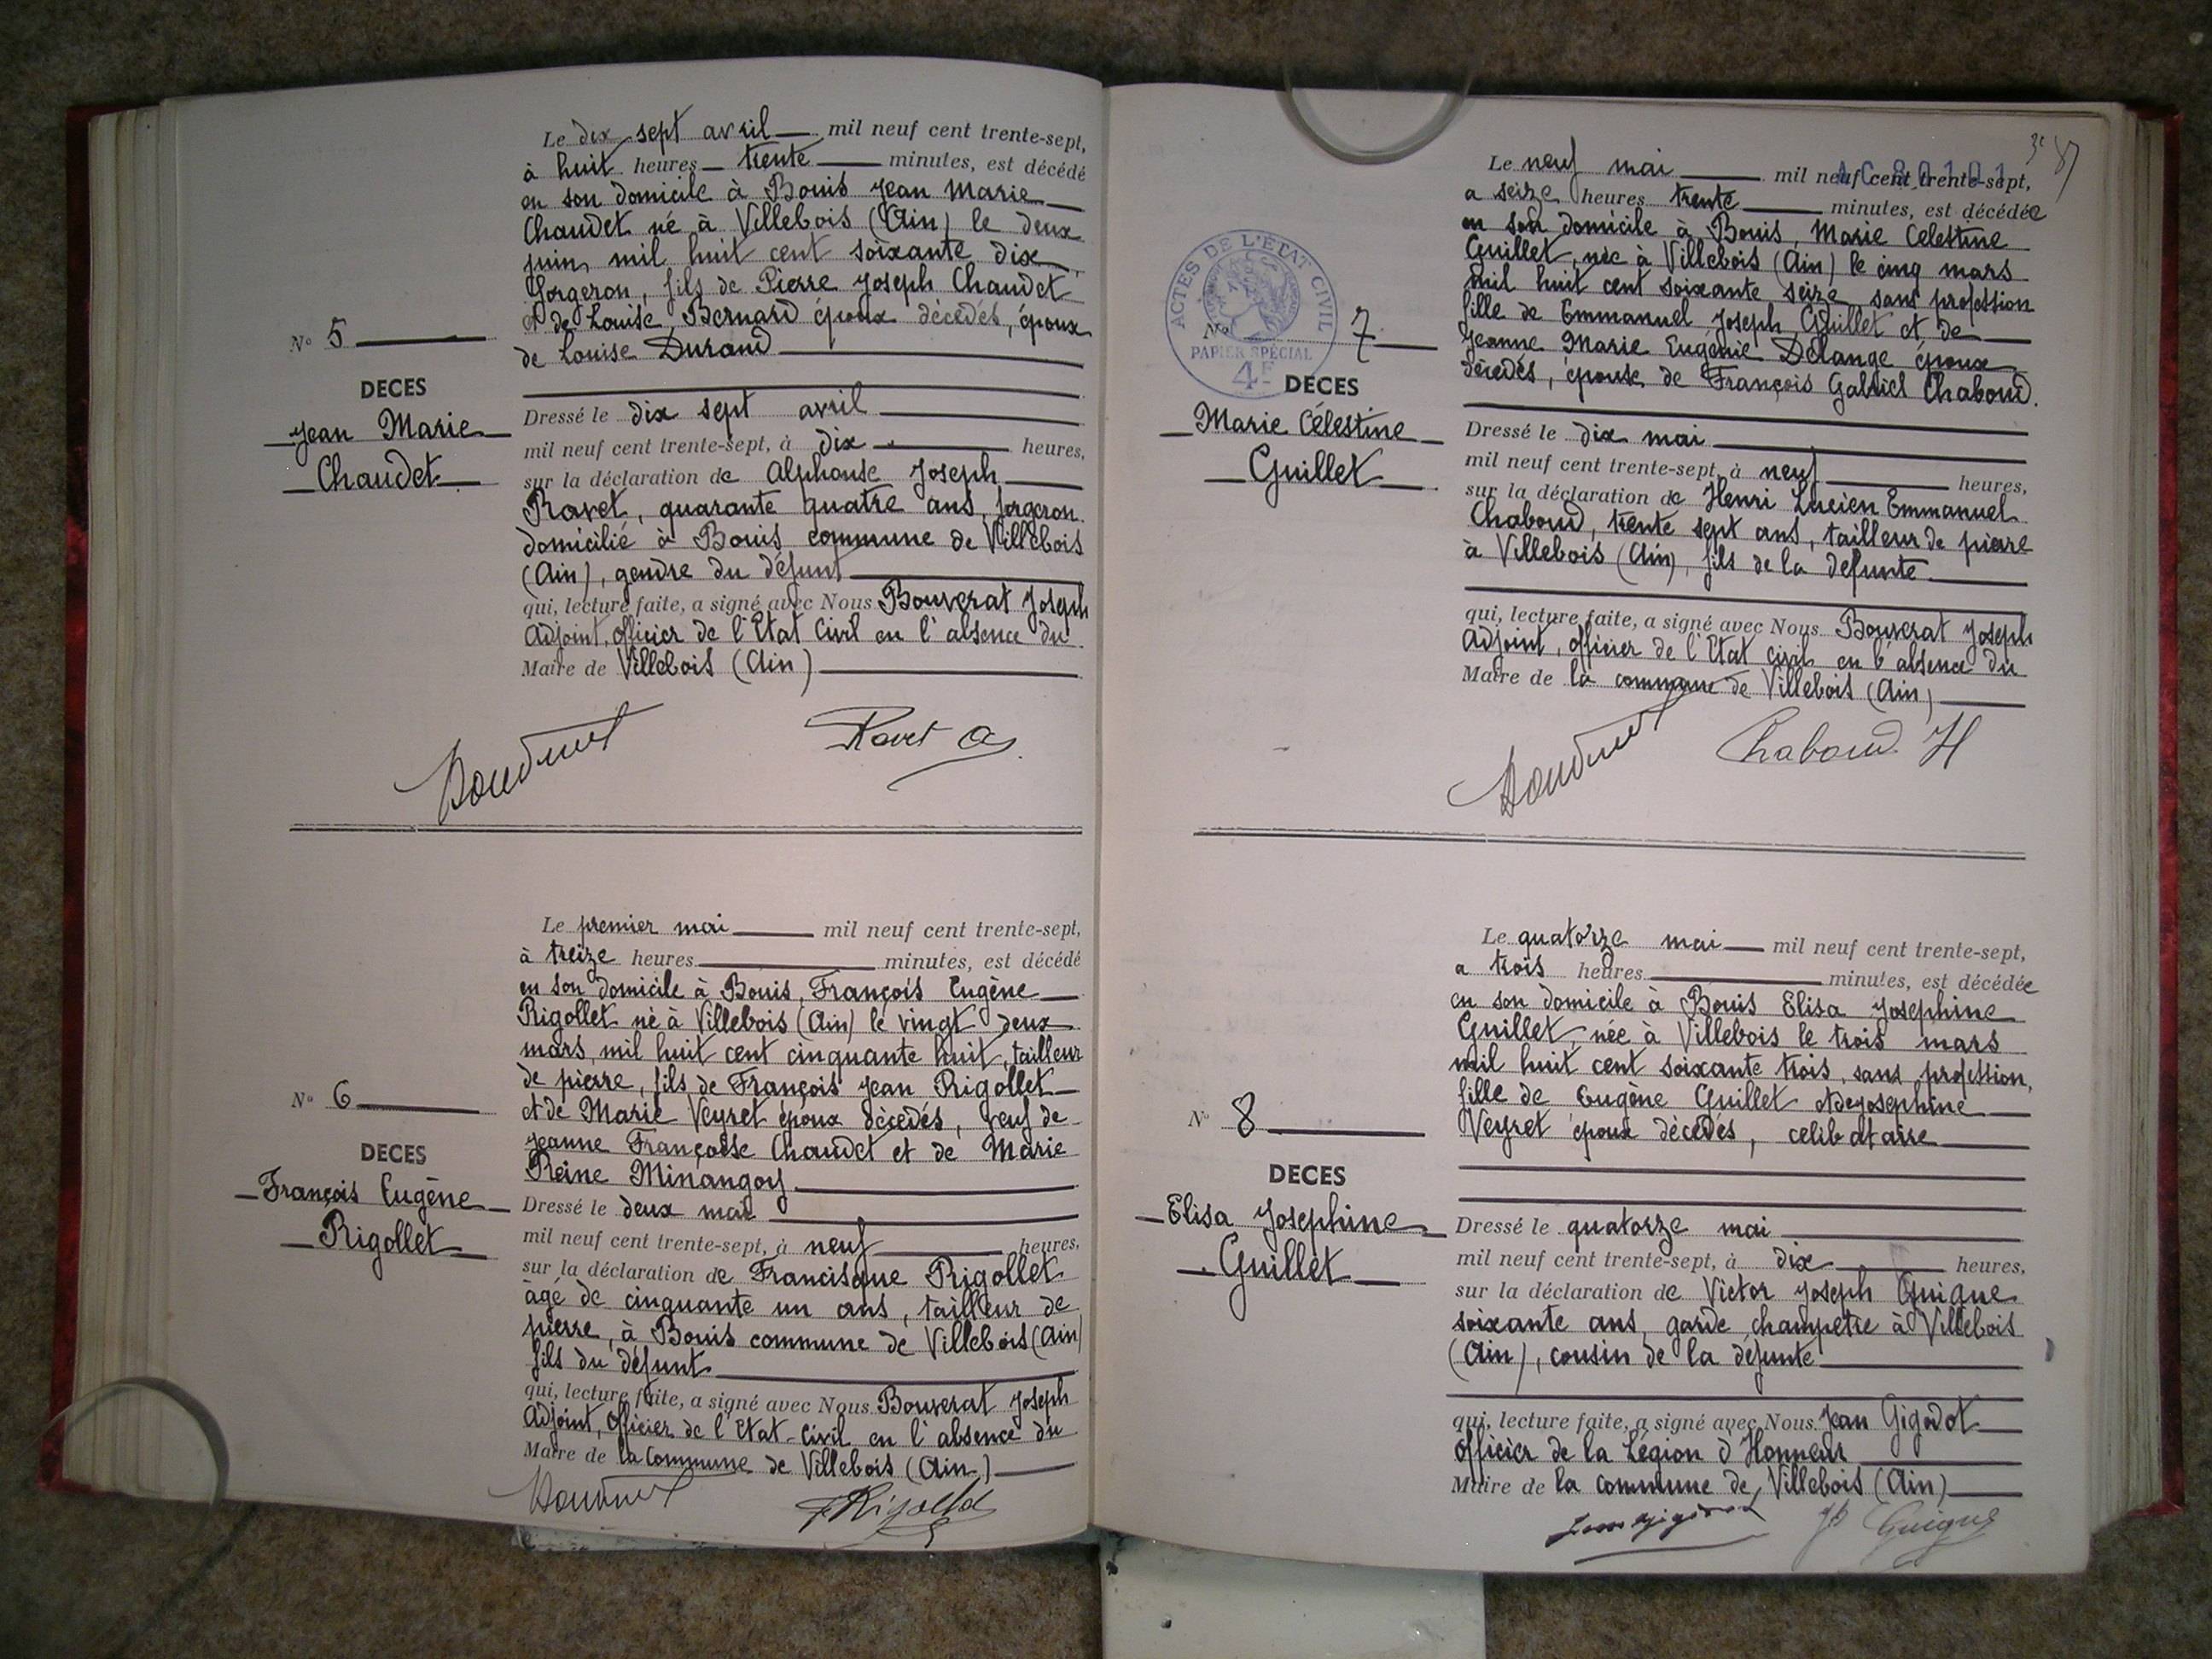 Le dix sept avril mil neuf cent trente-sept,
à huit heures trente minutes, est décédé
en son domicile à Bouis Jean Marie
Chaudet né à Villebois (Ain) le deux
juin mil huit cent soixante dix,
forgeron, fils de Pierre Joseph Chaudet
et de Louise Bernard époux décédés, époux
de Louise Durand
N° 5
DECES
Jean Marie
Chaudet
Dressé le dix sept avril
mil neuf cent trente-sept, à dix heures,
sur la déclaration de Alphonse Joseph
Ravet, quarante quatre ans, forgeron
domicilié à Bouis commune de Villebois
(Ain), gendre du défunt
qui, lecture faite, a signé avec Nous Bouverat Joseph
Adjoint, officier de l'Etat Civil en l'absence du
Maire de Villebois (Ain)
Ravet A
Le premier mai mil neuf cent trente-sept,
à treize heures minutes, est décédé
en son domicile à Bouis, François Eugène
Rigollet né à Villebois (Ain) le vingt deux
mars mil huit cent cinquante huit, tailleur
de pierre, fils de François Jean Rigollet
et de Marie Veyret époux décédés, veuf de
Jeanne Françoise Chaudet et de Marie
Reine Minangoy
N° 6
DECES
François Eugène
Rigollet
Dressé le deux mai
mil neuf cent trente-sept, à neuf heures,
sur la déclaration de Francisque Rigollet
âgé de cinquante un ans, tailleur de
pierre, à Bouis commune de Villebois (Ain)
fils du défunt
qui, lecture faite, a signé avec Nous Bouverat Joseph
Adjoint, Officier de l'Etat-Civil en l'absence du
Maire de la commune de Villebois (Ain)
87
Le neuf mai mil neuf cent trente-sept,
a seize heures trente minutes, est décédée
en son domicile à Bouis, Marie Celestine
Guillet, née à Villebois (Ain) le cinq mars
mil huit cent soixante seize sans profession
fille de Emmanuel Joseph Guillet et de
Jeanne Marie Eugénie Delange époux
décédés, épouse de François Gabriel Chaboud.
ACTES DE L'ÉTAT CIVIL
PAPIER SPÉCIAL
4F
N° 7
DECES
Marie Célestine
Guillet
Dressé le dix mai
mil neuf cent trente-sept, à neuf heures,
sur la déclaration de Henri Lucien Emmanuel
Chaboud, trente sept ans, tailleur de pierre
à Villebois (Ain), fils de la défunte
qui, lecture faite, a signé avec Nous Bouverat Joseph
Adjoint, officier de l'Etat civil en l'absence du
Maire de la commune de Villebois (Ain)
Chaboud H
Le quatorze mai mil neuf cent trente-sept,
a trois heures minutes, est décédée
en son domicile à Bouis Elisa Josephine
Guillet, née à Villebois le trois mars
mil huit cent soixante trois, sans profession,
fille de Eugène Guillet et de Josephine
Veyret époux décédés, celibataire
N° 8
DECES
Elisa Josephine
Guillet
Dressé le quatorze mai
mil neuf cent trente-sept, à dix heures,
sur la déclaration de Victor Joseph Guigue
soixante ans, garde champetre à Villebois
(Ain), cousin de la défunte
qui, lecture faite, a signé avec Nous Jean Gigodot
Officier de la Légion d'Honneur
Maire de la commune de Villebois (Ain)
Guigue